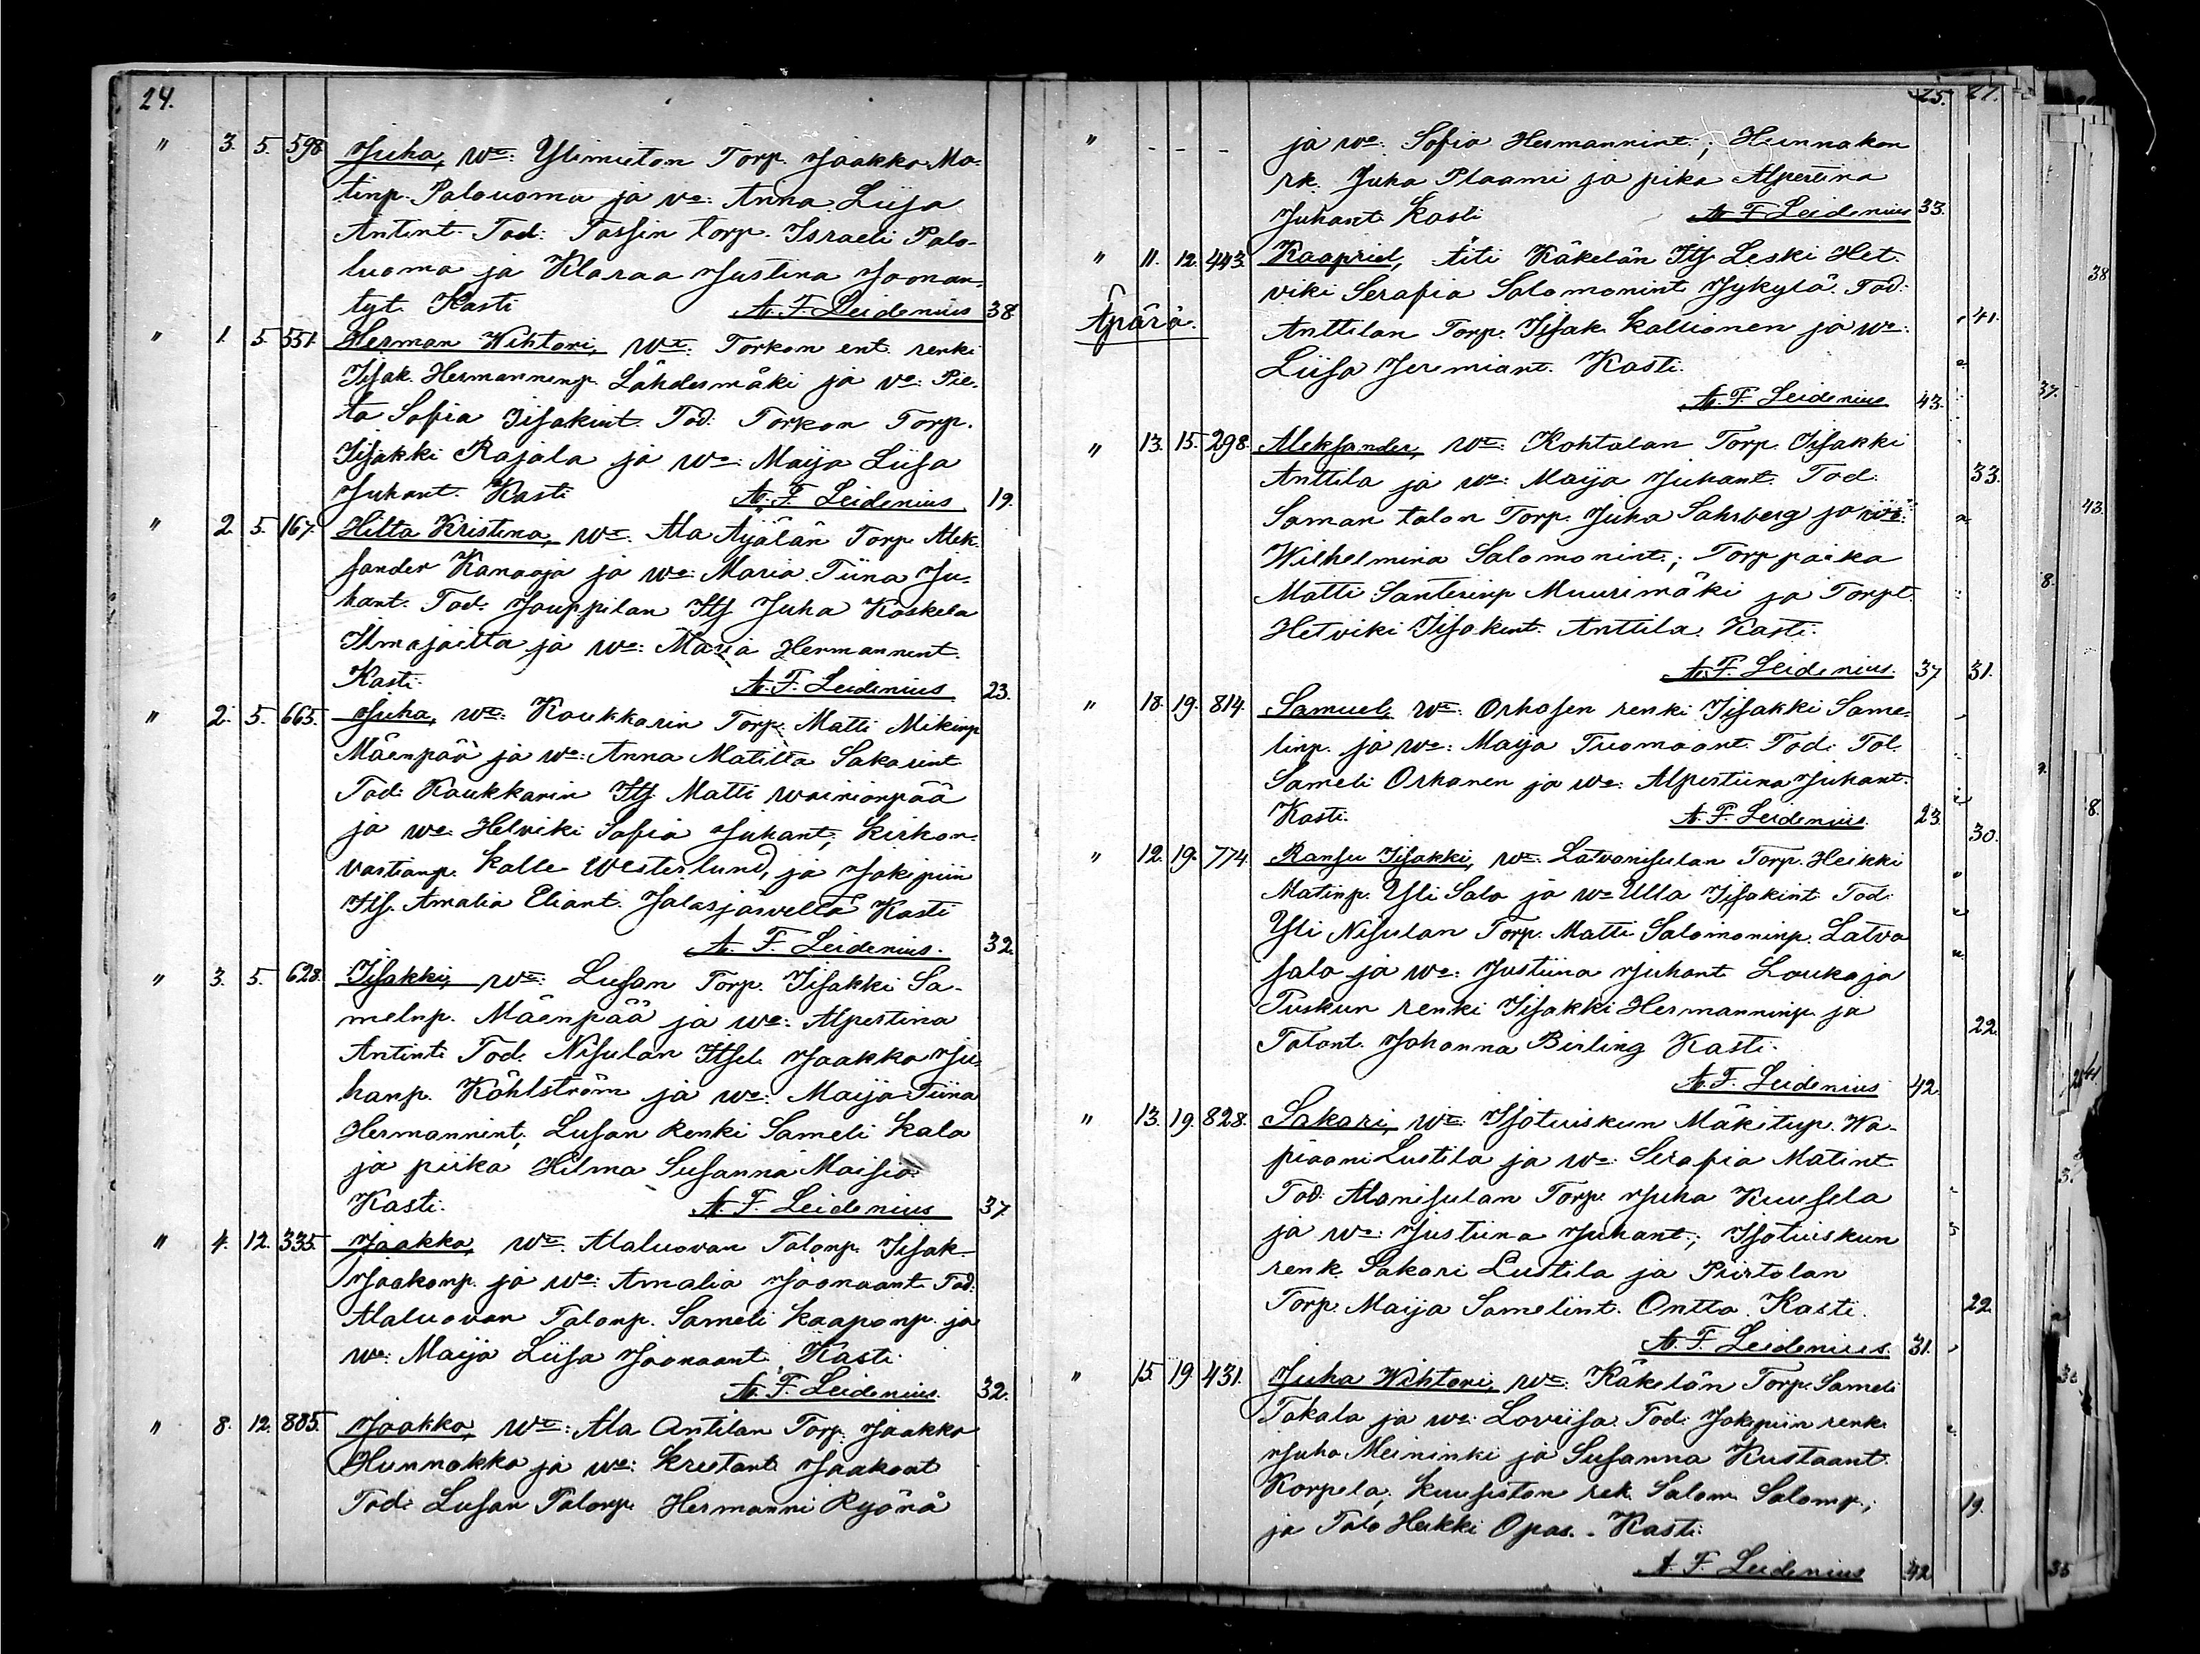 24.
" 3. 5. 598. Juha, wt: Ylimuton Torp. Jaakko Ma-
tinp. Palouoma ja vo: Anna Liisa
Antint. Tod: Torp. Israeli Palo-
luoma ja Klaraa Justina Jooman-
tyt. Kasti A. F. Leidenius 38
" 1. 5. 551. Herman Wihtori, wt: Torkon ent. renki
Iisak. Hermanninp. Lähdesmäki ja vo: Pie-
ta Sofia Iisakint. Tod. Torkon Torp.
Iisakki Rajala ja wo: Maija Liisa
Juhant. Kasti A. F. Leidenius 19.
" 2. 5. 167. Hilta Kristina, wt. Ala Äijälän Torp. Alek-
sander Kanaoja ja wo: Maria Tiina Ju-
hant. Tod. Jouppilan Itj Juha Koskela
Ilmajoilta ja wo: Maria Hermannint.
Kasti. A. F. Leidenius 23.
" 2. 5. 665. Juha, wt: Koukkarin Torp. Matti Mikinp
Mäenpää ja wo: Anna Matilta Sakarint
Tod: Koukkarin Itj. Matti Wainionpää
ja wo: Helviki Sofia Juhant; kirkon-
vartianp. Kalle Westerlund, ja Jokipiin
Itj. Amalia Eliant. Jalasjärvellä Kasti
A. F. Leidenius. 32.
" 3. 5. 628. Iisakki, wt: Lusan Torp. Iisakki Sa-
melnp. Mäenpää ja wo: Alpertina
Antint. Tod. Nisulan Itsel. Jaakko Ju-
hanp. Köhlström ja wo: Maija Tiina
Hermannint; Lusan Renki Sameli Kala
ja piika Hilma Susanna Maisia
Kasti. A. F. Leidenius 37
" 4. 12. 335. Jaakko, wt. Alaluovan Talonp. Iisak
Jaakonp. ja wo: Amalia Joonaant. Tod:
Alaluovan Talonp. Sameli Kaaponp. ja
wo: Maija Liisa Joonaant. Kasti.
A. F. Leidenius. 32.
" 8. 12. 885. Jaakko, wt: Ala Antilan Torp. Jaakko
Hunnakko ja wo: Kreetant. Jaakoat
Tod: Lusan Talonp. Hermanni Ryönä
25. 27.
" - - - ja wo: Sofia Hermannint.; Hunnakon
rk. Juha Plaami ja pika Alpertina
Juhant. Kasti A. F. Leidenius 33.
" 11. 12. 443. Kaapriel, äiti Käkelän Itj Leski Het-
viki Serafia Salomonint Jykylä. Tod:
Äpärä. Anttilan Torp. Iisak Kallionen ja wo: 41.
Liisa Jeremiant. Kasti.
A. F. Leidenius 43.
" 13. 15. 298. Aleksander, wt: Kohtalan Torp. Iisakki
Anttila ja wo: Maija Juhant. Tod: 33.
Saman talon Torp. Juha Sahrberg ja wo:
Wilhelmina Salomonint.; Torp paika
Matti Santerinp Muurimäki ja Torpt.
Hetviki Iisakint. Anttila. Kasti.
A. F. Leidenius. 37 31.
" 18. 19. 814. Samuel, wt: Orhasen renki Iisakki Same-
linp. ja wo: Maija Tuomaant. Tod: Tal.
Sameli Orhanen ja wo: Alpertiina Juhant.
Kasti. A. F. Leidenius. 23. 30.
" 12. 19. 774. Ransu Iisakki, wt: Latvanisulan Torp. Heikki
Matinp. Yli Salo ja wo Ulla Iisakint. Tod:
Yli Nisulan Torp. Matti Salomoninp. Latva
salo ja wo: Justiina Juhant Loukaja
Puskun renki Iisakki Hermanninp. ja 22.
Talont. Johanna Birling Kasti.
A. F. Leidenius 42.
" 13. 19. 828. Sakari, wt: Isotuiskun Mäkitup. Wa-
piaani Lustila ja wo: Serafia Matint.
Tod: Alanisulan Torp. Juha Kuusela
ja wo: Justiina Juhant.; Isotuiskun
renk. Sakari Lustila ja Piirtolan
Torp. Maija Samelint. Ontto. Kasti. 22.
A. F. Leidenius. 31.
" 15. 19. 431. Juha Wihtori, wt: Käkelän Torp. Sameli
Takala ja wo: Loviisa. Tod: Jokipiin renk.
Juho Meininki ja Susanna Kustaant.
Korpela; Kuusiston rek. Salom. Salomp.; 19.
ja Talo Heikki Opas. Kasti.
A. F. Leidenius 42